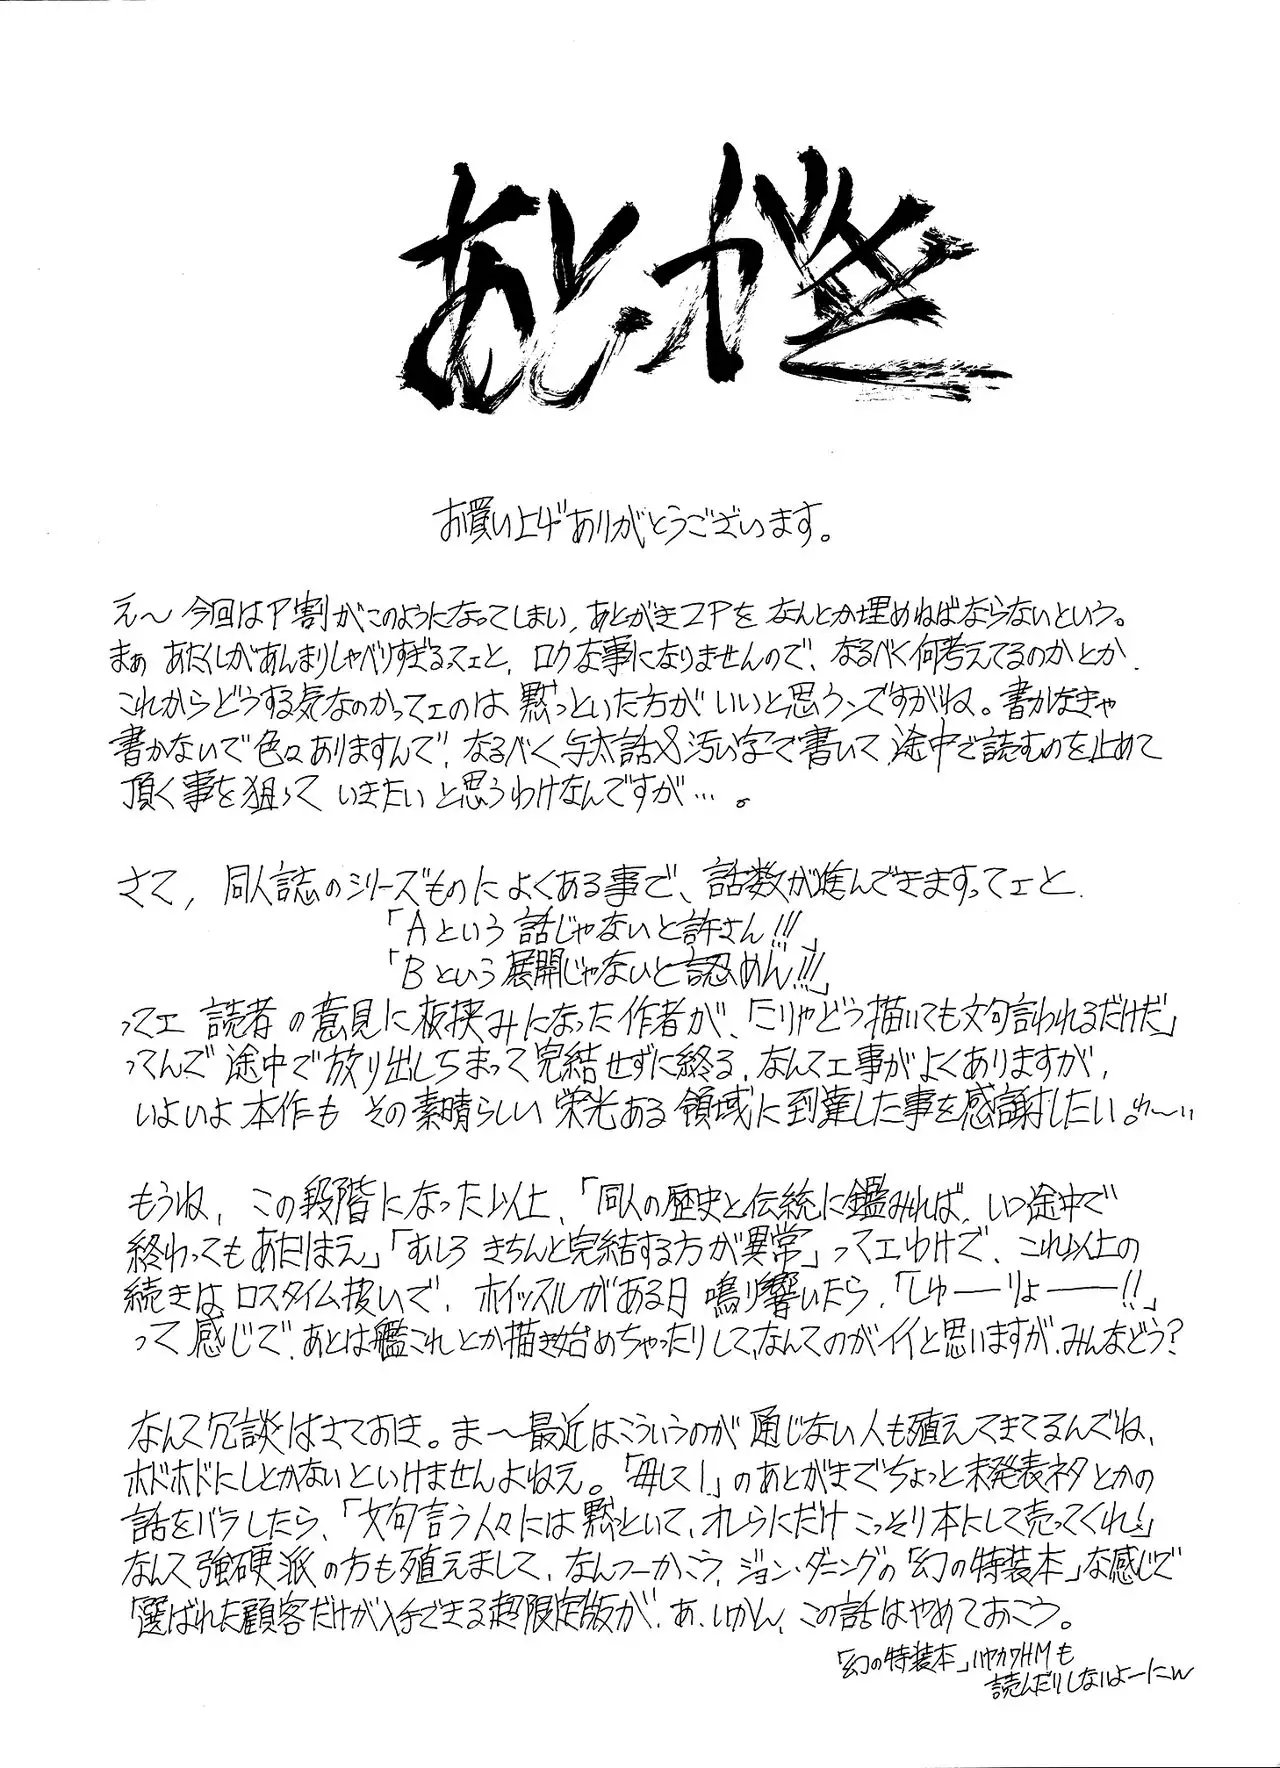 あとがき
お買い上げありがとうございます。
え〜今回はP割がこのようになってしまい、あとがき2Pをなんとか埋めねばならないという。
まぁあたくしがあんまりしゃべりすぎるってェと、ロクな事になりませんので、なるべく何考えてるのかとか、
これからどうする気なのかってェのは黙っといた方がいいと思うンですがね。書かなきゃ
書かないで色々ありますんで、なるべく与太話&汚い字で書いて途中で読むのを止めて
頂く事を狙っていきたいと思うわけなんですが…。
さて、同人誌のシリーズものによくある事で、話数が進んできますってェと、
「Aという話じゃないと許さん!!!」
「Bという展開じゃないと認めん!!!」
ってェ読者の意見に板挟みになった作者が、「こりゃどう描いても文句言われるだけだ」
ってんで途中で放り出しちまって完結せずに終る、なんてェ事がよくありますが、
いよいよ本作もその素晴らしい栄光ある領域に到達した事を感謝したい。わ〜い
もうね、この段階になった以上、「同人の歴史と伝統に鑑みれば、いつ途中で
終わってもあたりまえ」「むしろきちんと完結する方が異常」ってェわけで、これ以上の
続きはロスタイム扱いで、ホイッスルがある日鳴り響いたら、「しゅーりょーー!!」
って感じで、あとは艦これとか描き始めちゃったりして、なんてのがイイと思いますが、みんなどう?
なんて冗談はさておき。ま〜最近はこういうのが通じない人も殖えてきてるんでね、
ホドホドにしとかないといけませんよねえ。「毎して1」のあとがきでちょっと未発表ネタとかの
話をバラしたら、「文句言う人々には黙っといて、オレらにだけこっそり本にして売ってくれ!」
なんて強硬派の方も殖えまして、なんつーかこう、ジョン・ダニングの「幻の特装本」な感じで
「選ばれた顧客だけが入手できる超限定版が、あ、いかん、この話はやめておこう。
「幻の特装本」ハヤカワHMも
読んだりしないよーにw